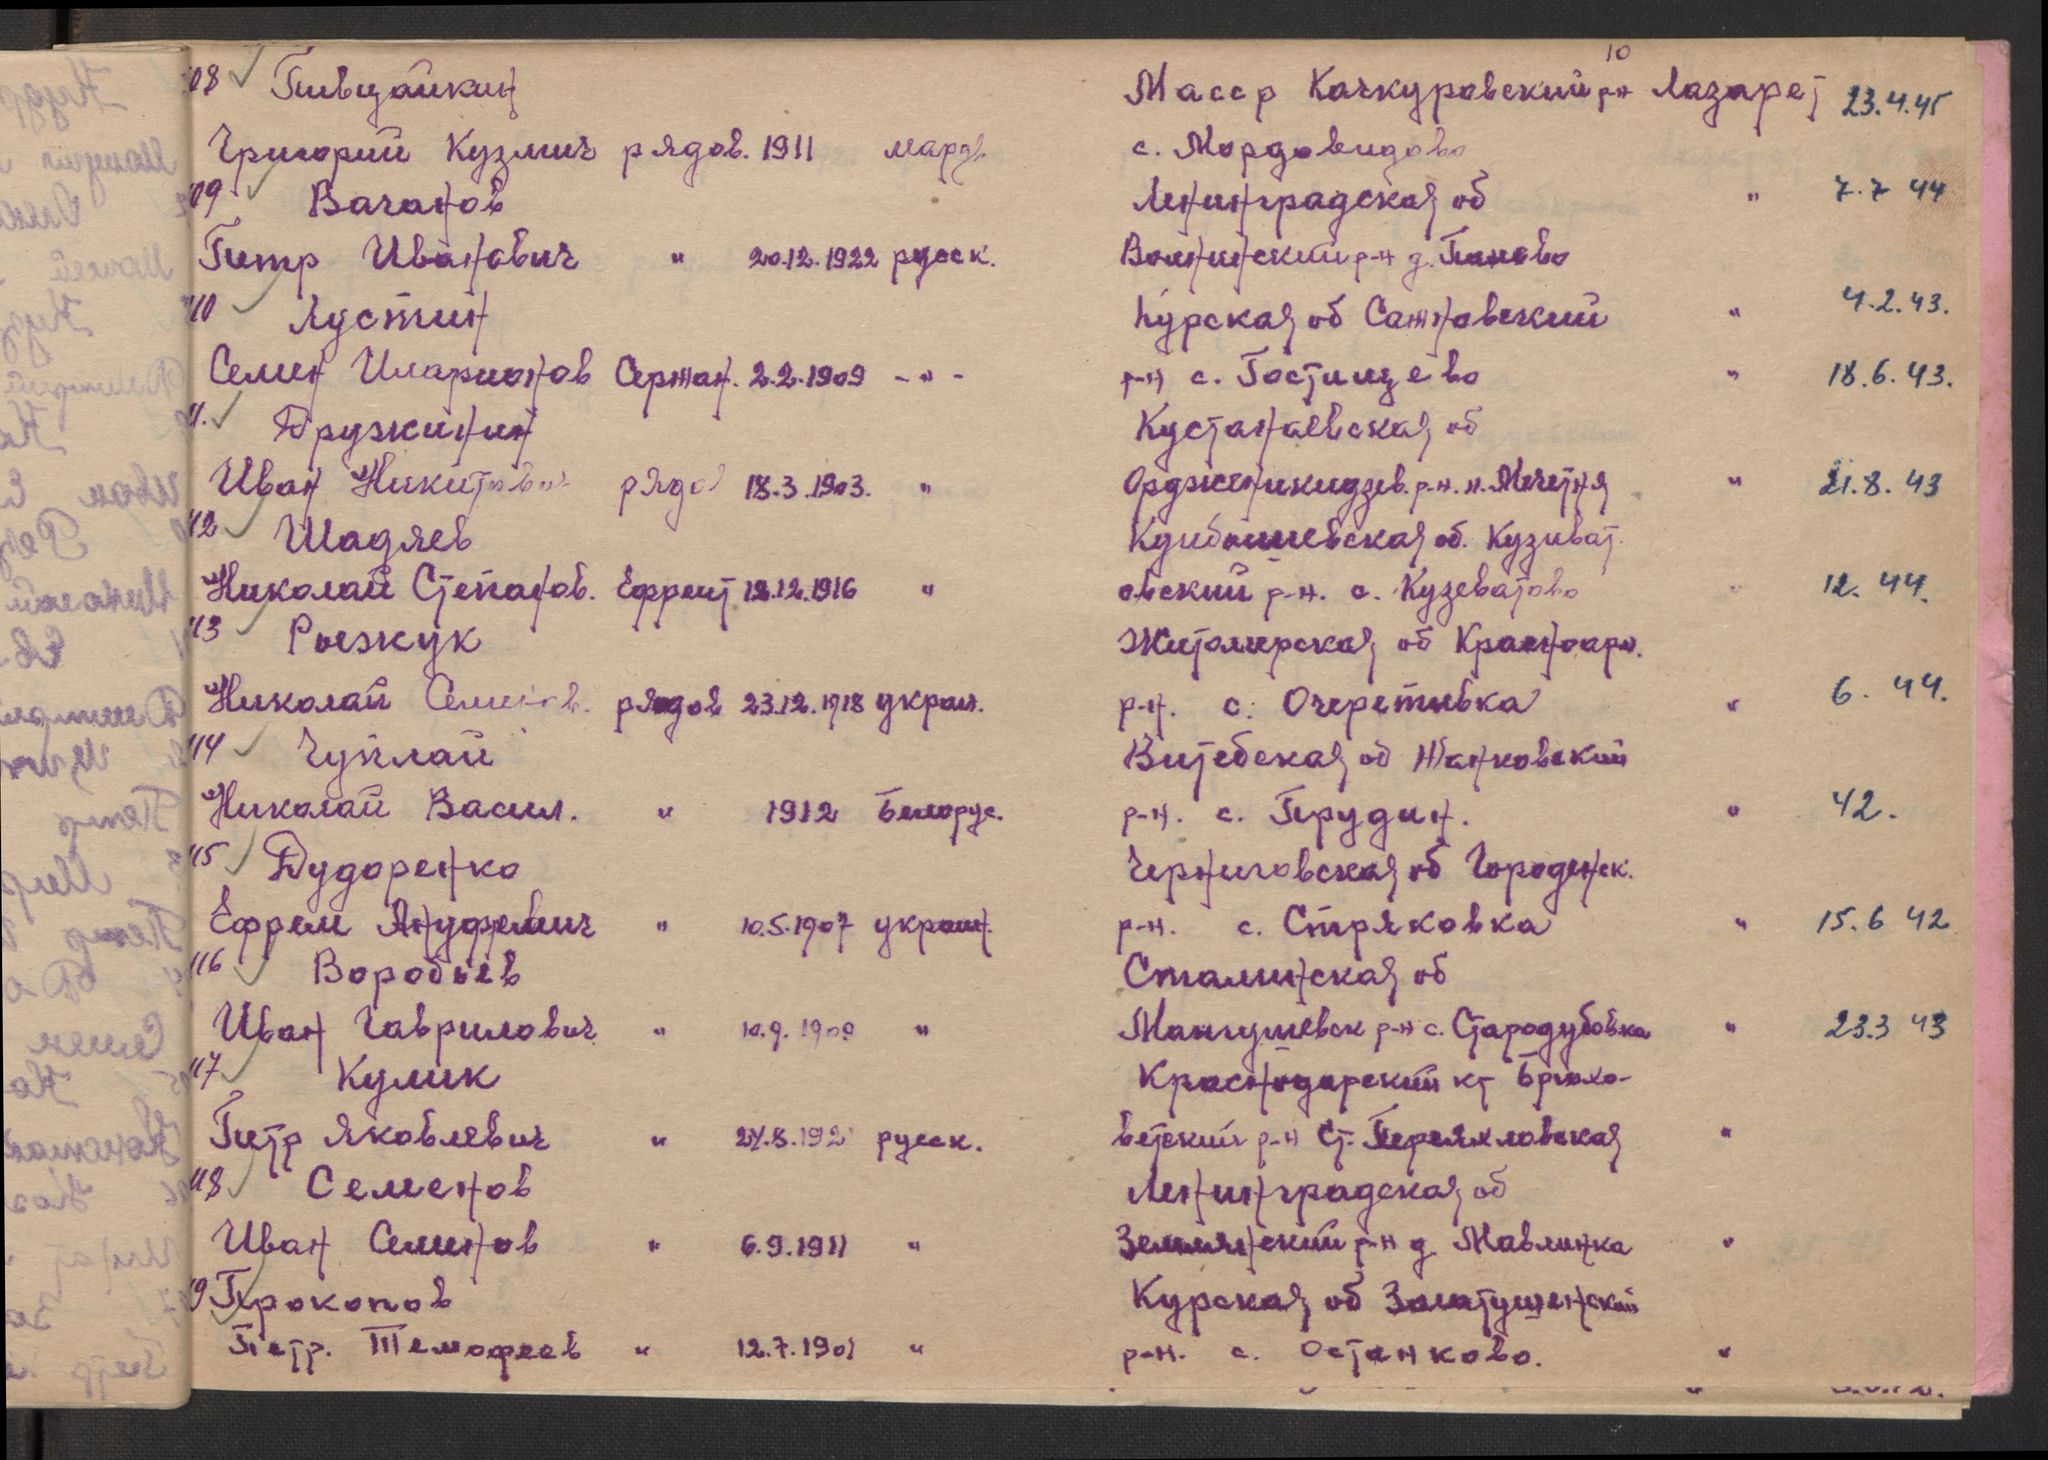 10
108 Пивцайкин Масср Качкуровский р-н Лазарет 23.4.45
Григорий Кузмич рядов. 1911 мардв с. Мордовидово
109 Вачанов Ленинградская об " 7.7 44
Петр Иванович " 20.12.1922 русск. Волынский р-н д. Паново
110 Лустин Курская об Сажновский " 4.2.43.
Семен Иларионов Сержан. 2.2.1909 -"- р-н с. Гостищево " 18.6.43.
11. Дружинин Кустанаевская об
Иван Никитович рядов 18.3.1903. " Орджоникидзев. р-н. п. Мечетня " 21.8.43
112 Шадяев Куибошевская об. Кузиват.
Николай Степанов. Ефрейт 12.12.1916 " овский р-н. с. Кузеватово " 12. 44.
113 Роезжук Житомирская об Красноарм.
Николай Семенов. рядов 23.12.1918 украин. р-н. с. Очеретивка " 6. 44.
114 Чуйлай Витебская об Жанковский
Николай Васил. " 1912 Белорус. р-н. с. Прудин. " 42.
115 Дудоренко Черниговская об Городенск.
Ефрем Ануфревич " 10.5.1907 украин. р-н. с. Стряковка " 15.6 42
116 Воробьев Сталинская об
Иван Гаврилович " 10.9.1909 " Мангушевск р-н с. Стародубовка " 23.3 43
117 Кулик Краснодарский кр Брюхо-
Петр Яковлевич " 24.8.192 русск. ветский р-н Ст. Переяхловская "
118 Семенов Ленинградская об
Иван Семенов " 6.9.1911 " р-н д. Мавлинка "
19 Прокопов Курская об
Петр. Темофеев " 12.7.1901 " р-н. с. Останково. "